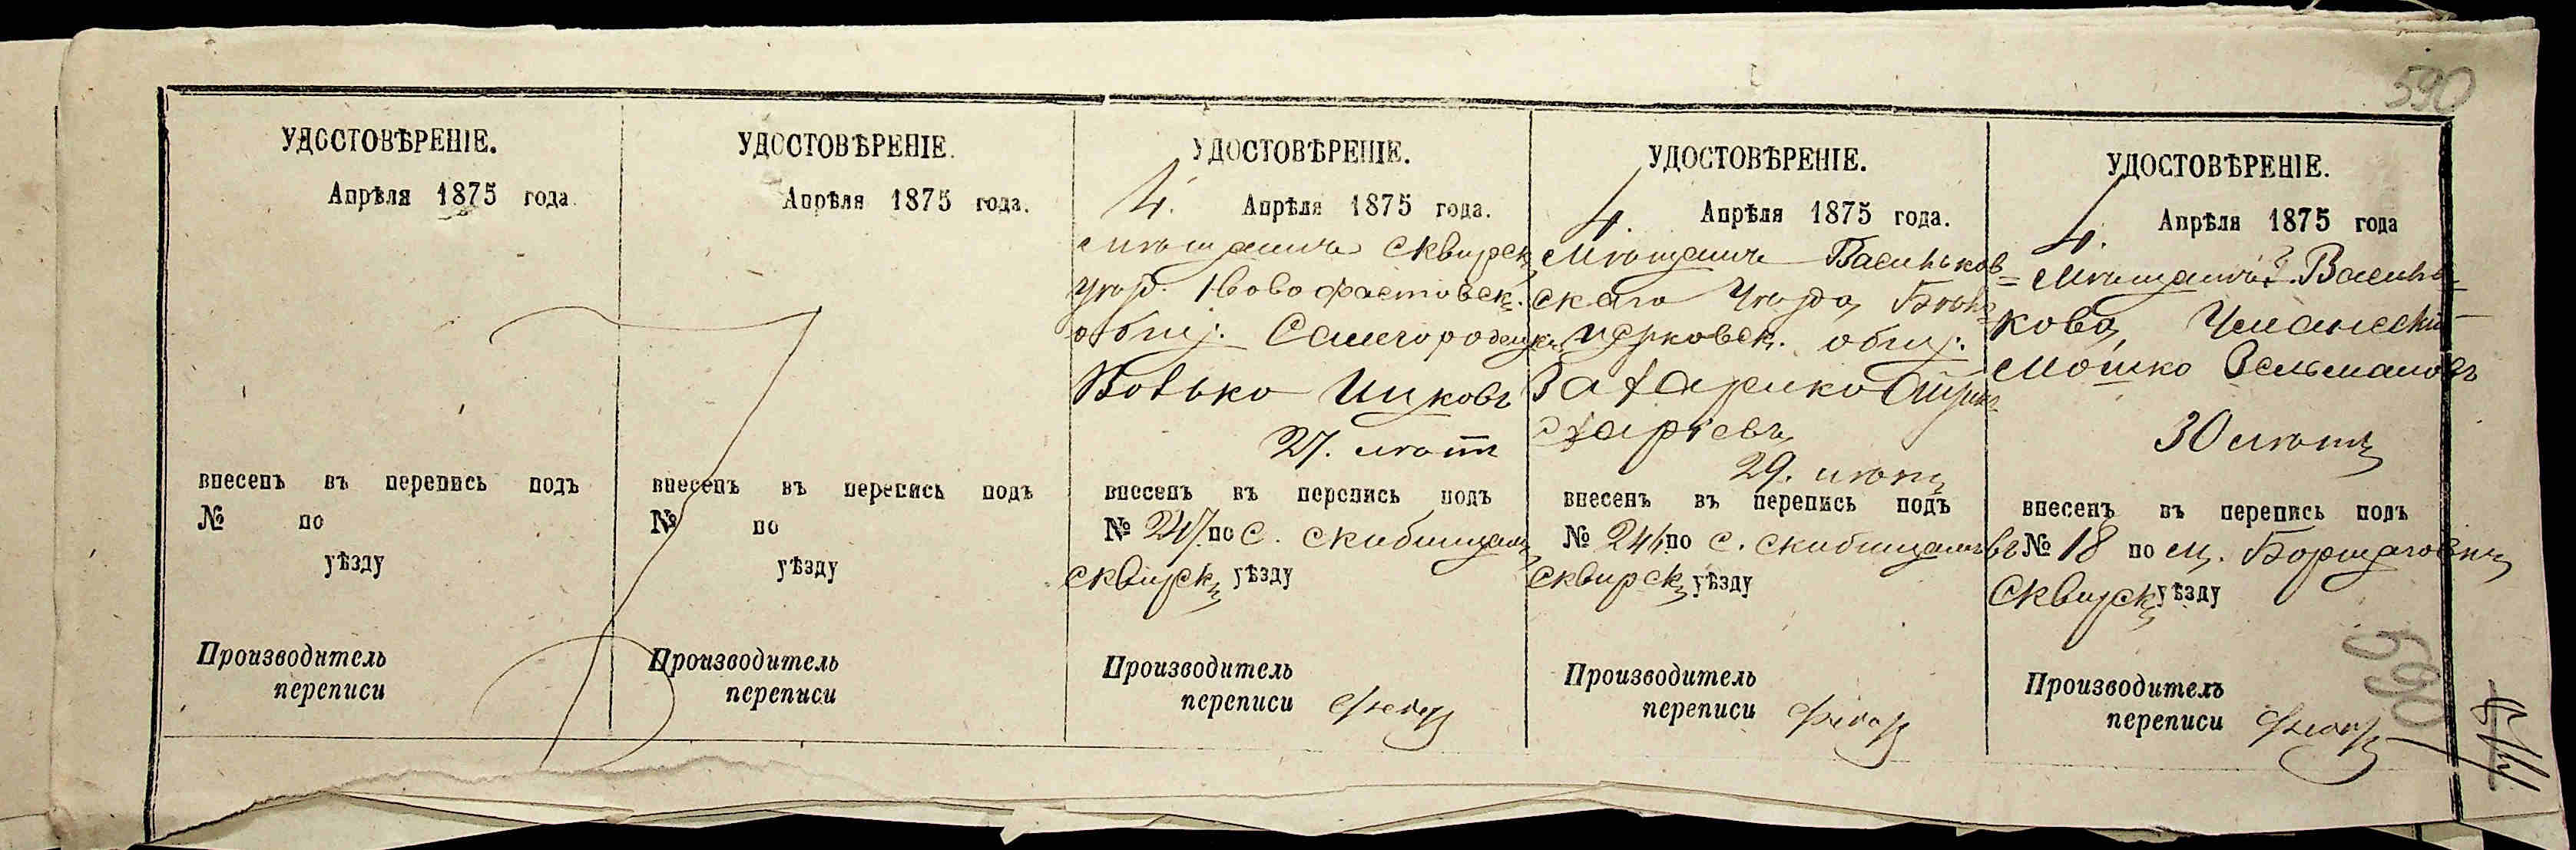 590
УДОСТОВѢРЕНІЕ.
Апрѣля 1875 года
внесенъ въ перепись подъ
№ по
уѣзду
Производитель
переписи
УДОСТОВѢРЕНІЕ.
Апрѣля 1875 года.
внесенъ въ перепись подъ
№ по
уѣзду
Производитель
переписи
УДОСТОВѢРЕНІЕ.
4. Апрѣля 1875 года.
Мѣщанинъ Сквирск.
уѣзд. Новофастовск.
общ. Самгородецк.
Волько Ицковъ
27. лѣтъ
внесенъ въ перепись подъ
№ 247. по с. Скибинцамъ
Сквирск. уѣзду
Производитель
переписи
УДОСТОВѢРЕНІЕ.
4. Апрѣля 1875 года.
Мѣщанинъ Васильков-
скаго Уѣзда, Бѣло-
церковск. общ.
29. лѣтъ
внесенъ въ перепись подъ
№ 246 по с. Скибинцамъ
Сквирск. уѣзду
Производитель
переписи
УДОСТОВѢРЕНІЕ.
4. Апрѣля 1875 года
Мѣщанинъ Г. Василь-
кова, Уманский
Мошко Зельмановъ
30 лѣтъ
внесенъ въ перепись подъ
№ 18 по м. Борщаговкѣ
Сквирск. уѣзду
Производитель
переписи
590